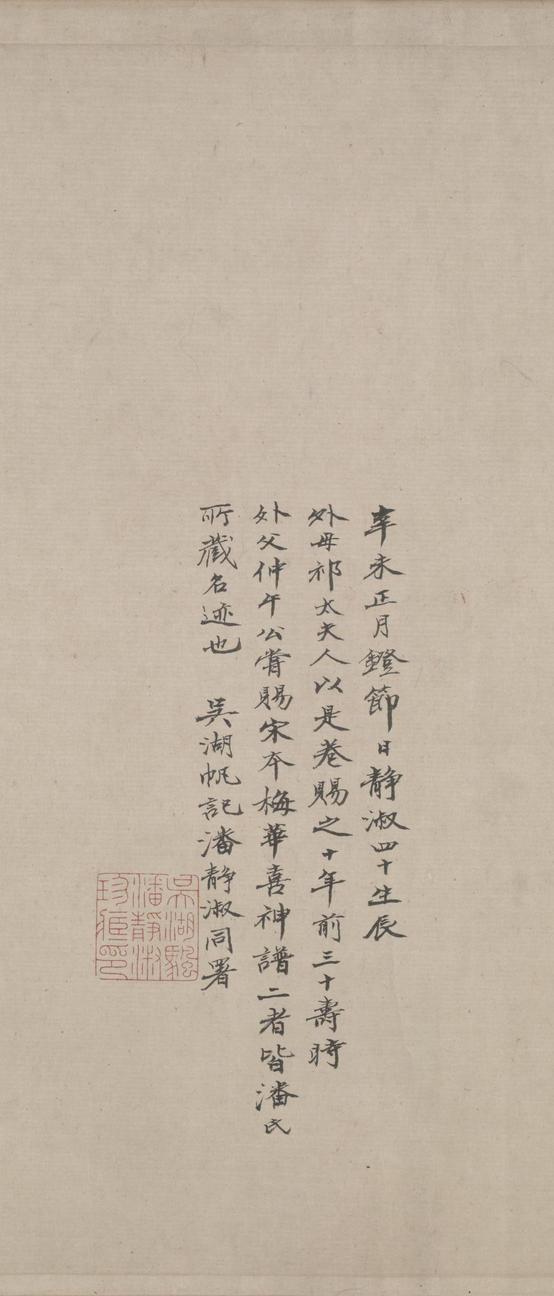 辛未正月鐙節日靜淑四十生辰
外母祁太夫人以是卷賜之十年前三十壽時
外父仲午公嘗賜宋本梅華喜神譜二者皆潘氏
所藏名迹也　吳湖帆記潘靜淑同署
吳湖颿
潘靜淑
珍藏印